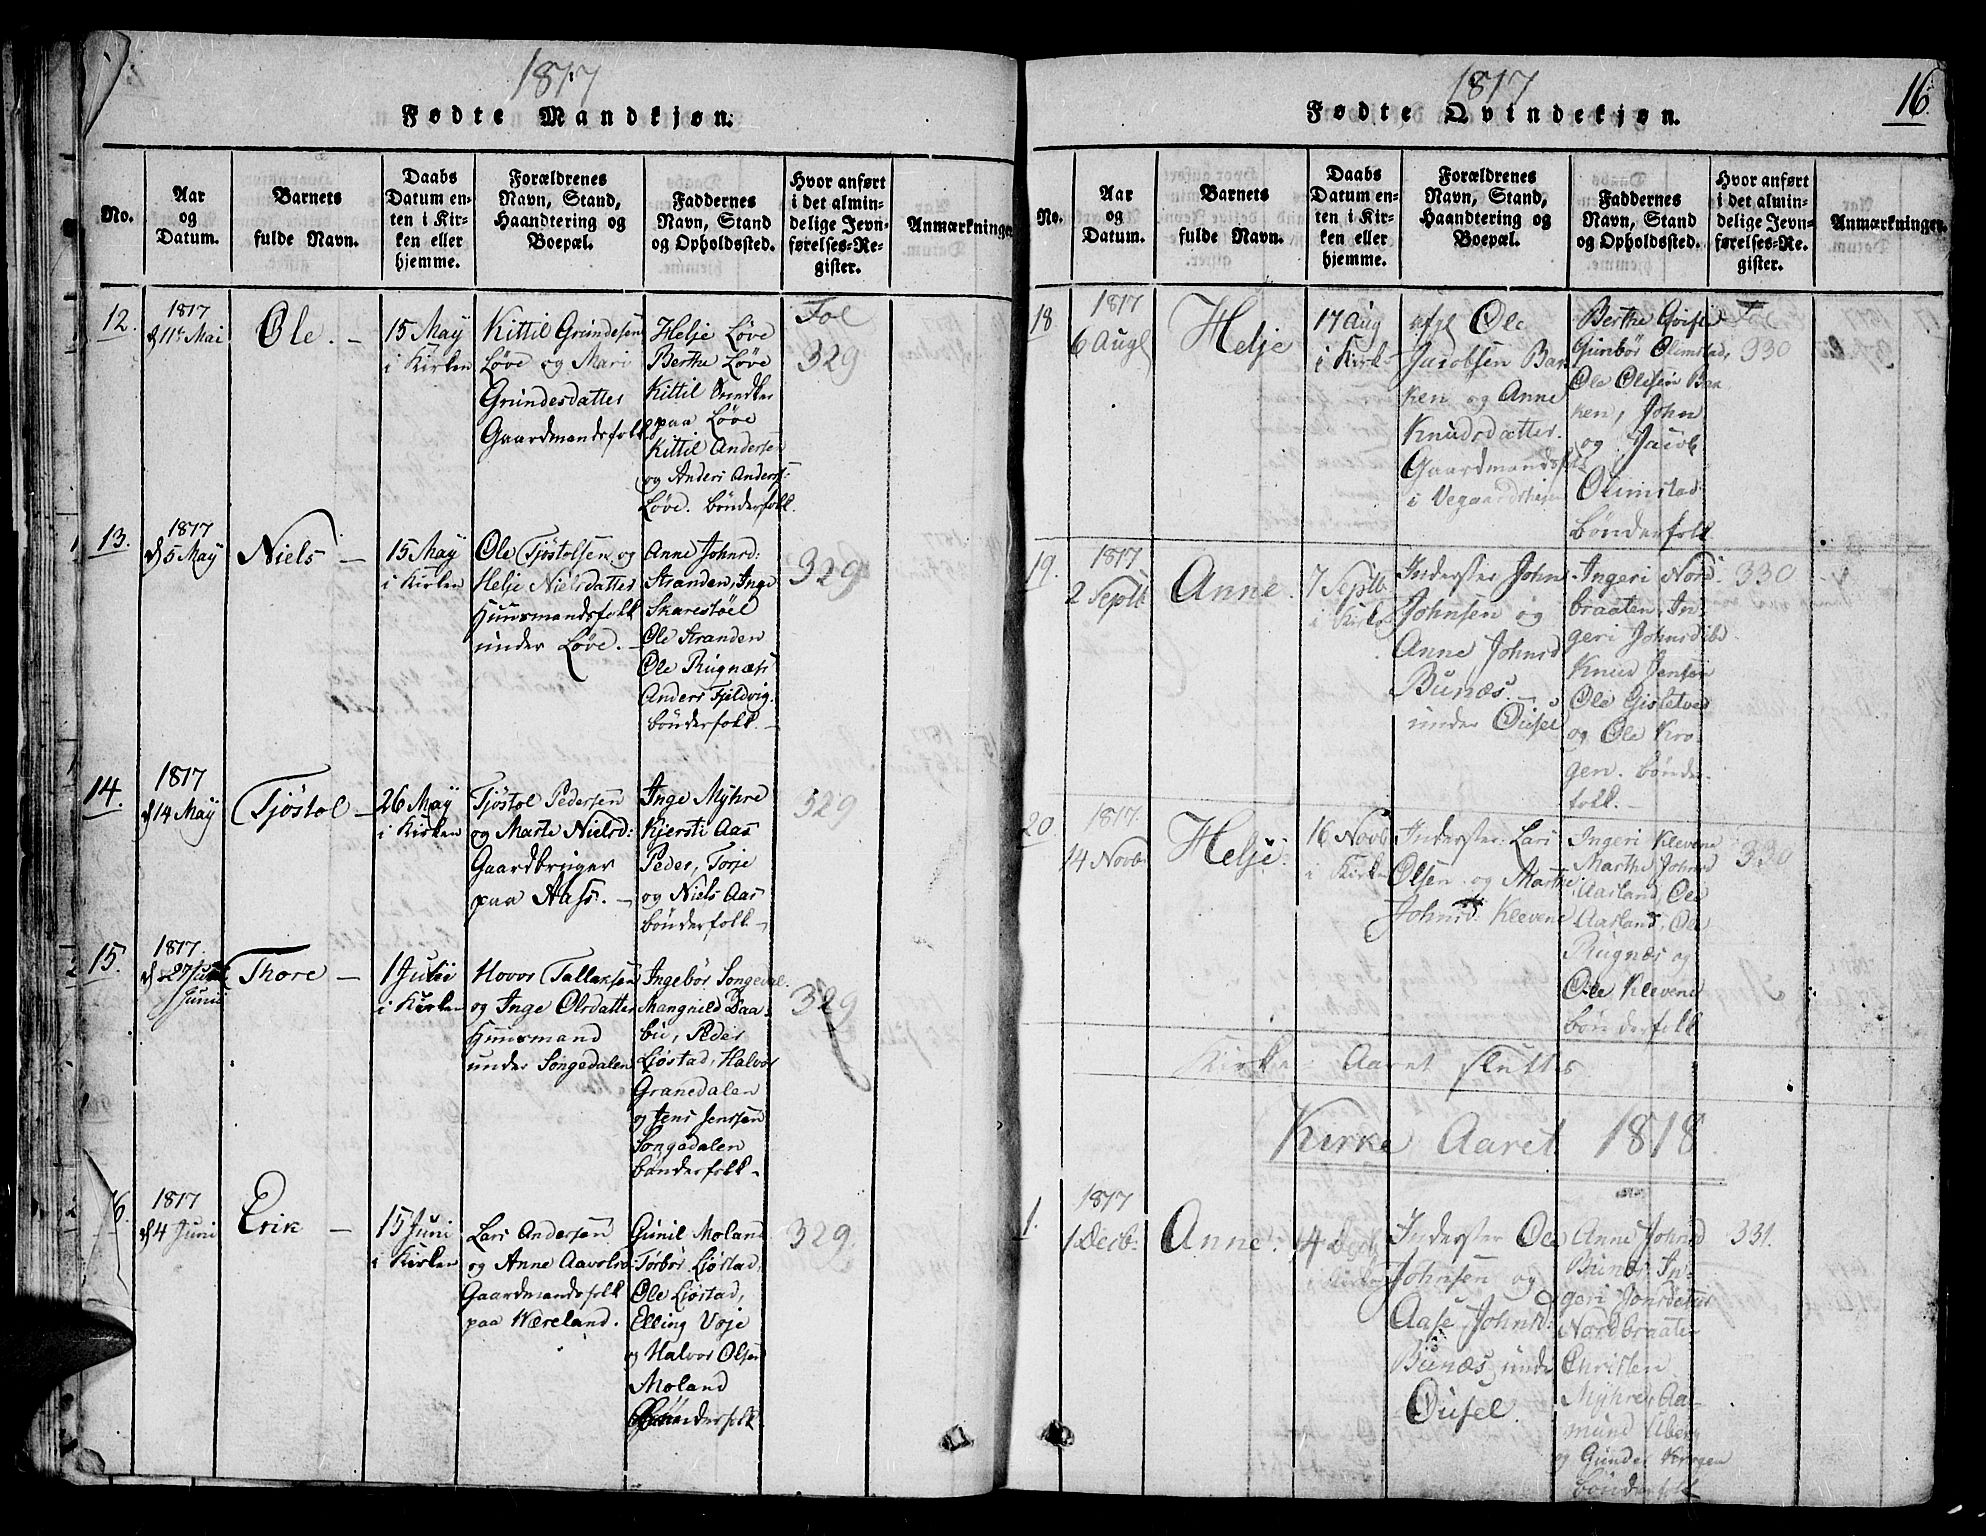 1817
Fødte Mandkjøn.
No.
Aar
og
Datum.
Barnets
fulde Navn.
Daabs
Datum en-
ten i Kir-
ken eller
hjemme.
Forældrenes
Navn, Stand,
Haandtering og
Boepæl.
Faddernes
Navn, Stand
og Opholdssted.
Hvor anført
i det almin-
delige Jevn-
førelses-Re-
gister.
Anmærkninger.
12.
1817
d 11te Mai
Ole. –
15 May
i Kirken
Kittil Grundesen
Løve og Mari
Grundesdatter
Gaardmandsfolk
Helje Løve
Berthe Løve
Kittil
paa Løve
Kittil Andersen
og Anders Anders:
Løve. bönderfolk.
Fol
329
13.
1817
d 5 May
Niels –
15 May
i Kirken
Ole Tjöstolsen og
Helje Nielsdatter
Huusmandsfolk
under Løve. –
Anne Johnsd:
Stranden, Inge
Skarestöel
Ole Stranden
Ole Rugnæs
Anders Fjeldvig.
bönderfolk. –
329
14.
1817
d 14 May
Tjöstol –
26 May
i Kirken
Tjöstol Pedersen
og Marte Nielsd:
Gaardbruger
paa Aass. –
Inge Myhre
Kjersti Aas
Peder, Torje
og Niels Aas
bönderfolk –
329
15.
1817.
d 27
Junii
Thore –
1 Julii
i Kirken
Hovor Tallaksen
og Inge Olsdatter
Huusmand
under Songedalen
Ingebör Songedal.
Mangnild Daa-
bu, Peder
Ljöstad, Halvor
Granedalen
og Jens Jenssen
Songedalen
bönderfolk –
329
16.
1817
d 4 Juni
Erik –
15 Juni
i Kirken
Lars Andersen
og Anne Aavolsd:
Gaardmandsfolk
paa Wæreland.
Gunil Moland
Torbör Ljöstad,
Ole Ljöstad,
Elling Voje
og Halvor Olsen
Moland
Bönderfolk
329.
1817
16.
Fødte Qvindekjøn.
No.
Aar
og
Datum.
Barnets
fulde Navn.
Daabs
Datum en-
ten i Kir-
ken eller
hjemme.
Forældrenes
Navn, Stand,
Haandtering og
Boepæl.
Faddernes
Navn, Stand
og Opholdssted.
Hvor anført
i det almin-
delige Jevn-
førelses-Re-
gister.
Anmærkninger.
18
1817
6 Augl
Helje
17 Aug
i Kirk
Ole
Jacobsen Bak
ken og Anne
Knudsdatter.
Gaardmandsfolk
i Vegaardsheien
Berthe
Gunbör Olimstad,
Ole Olesen Bak
ken, John
og Jacob
Olimstad
bönderfolk
330
19.
1817
2 Septb
Anne.
7 Septb
i Kirk
Inderster John
Johnsen og
Anne Johnsd
Bunæs
under Ousel
Ingeri Nord-
braaten, In-
geri Johnsd
Knud Jensen
Ole Gjöstelved
og Ole Kro-
gen. bönder-
folk. –
330
20.
1817.
14 Novb
Helje.
16 Novb
i Kirken
Inderster Lars
Olsen og Marthe
Johnsd. Klevene
Ingeri Klevene
Marthe Johnsd
Aarland, Ole
Aarland, Ole
Rugnæs og
Ole Klevene
bönderfolk
330
Kirke-Aaret sluttes
Kirke Aaret 1818.
1.
1817
1 Decb:
Anne.
4 Decb
Inderster Ole
Johnsen og
Aase Johnsd:
Bunæs under
Ousel.
Anne Johnsd
Bunæs, In-
geri
Nordbraaten
Christen
Myhre, Aa-
mund Uberg
og Gunder Krogen
bönderfolk
331.